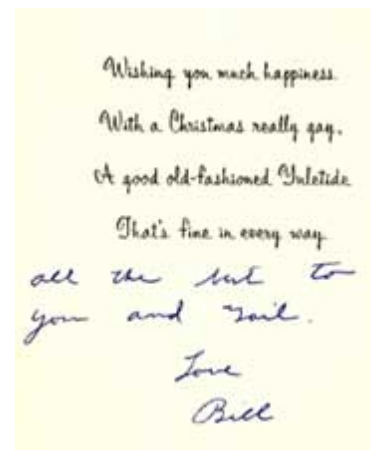 Wishing you much happiness
With a Christmas really gay,
A good old-fashioned Yuletide
That's fine in every way
all the best to
you and Gail.
Love
Bill